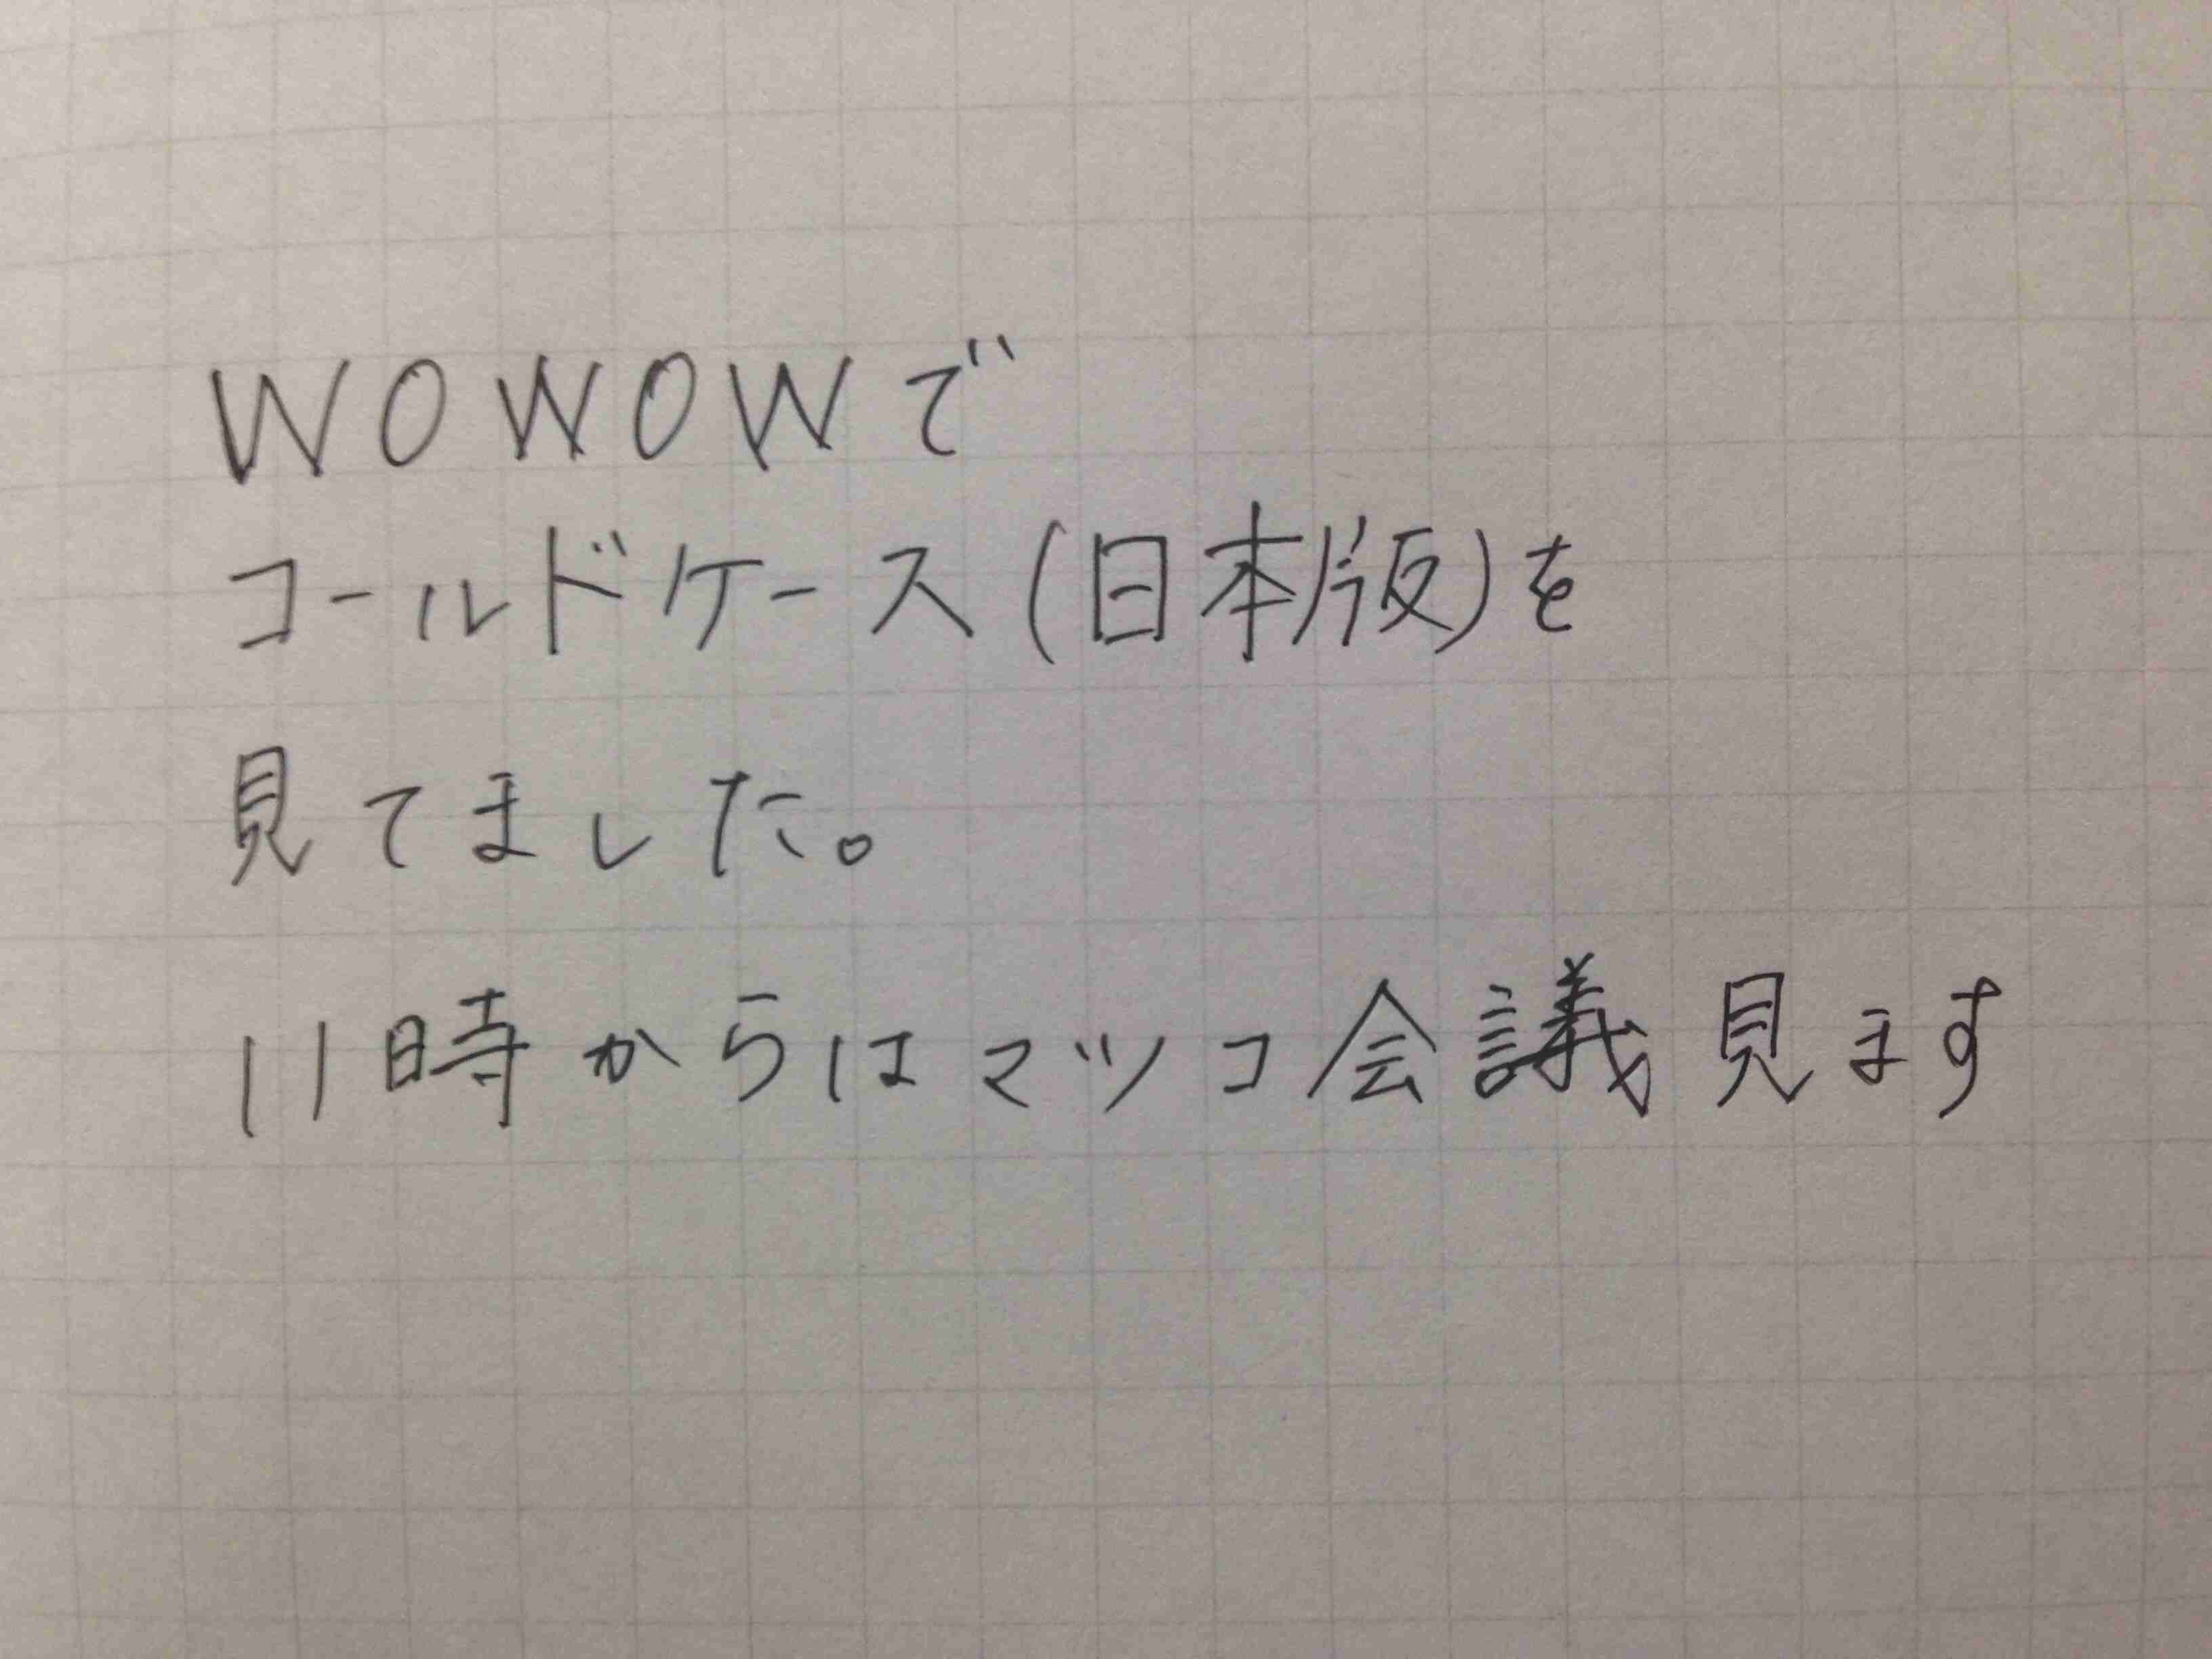 WOWOWで
コールドケース(日本版)を
見てました。
11時からはマツコ会議見ます